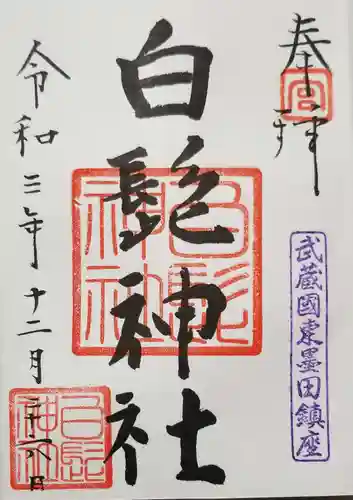 奉拝
武蔵國東墨田鎮座
白髭神社
白髭神社
令和三年十二月二十八日
白髭神社